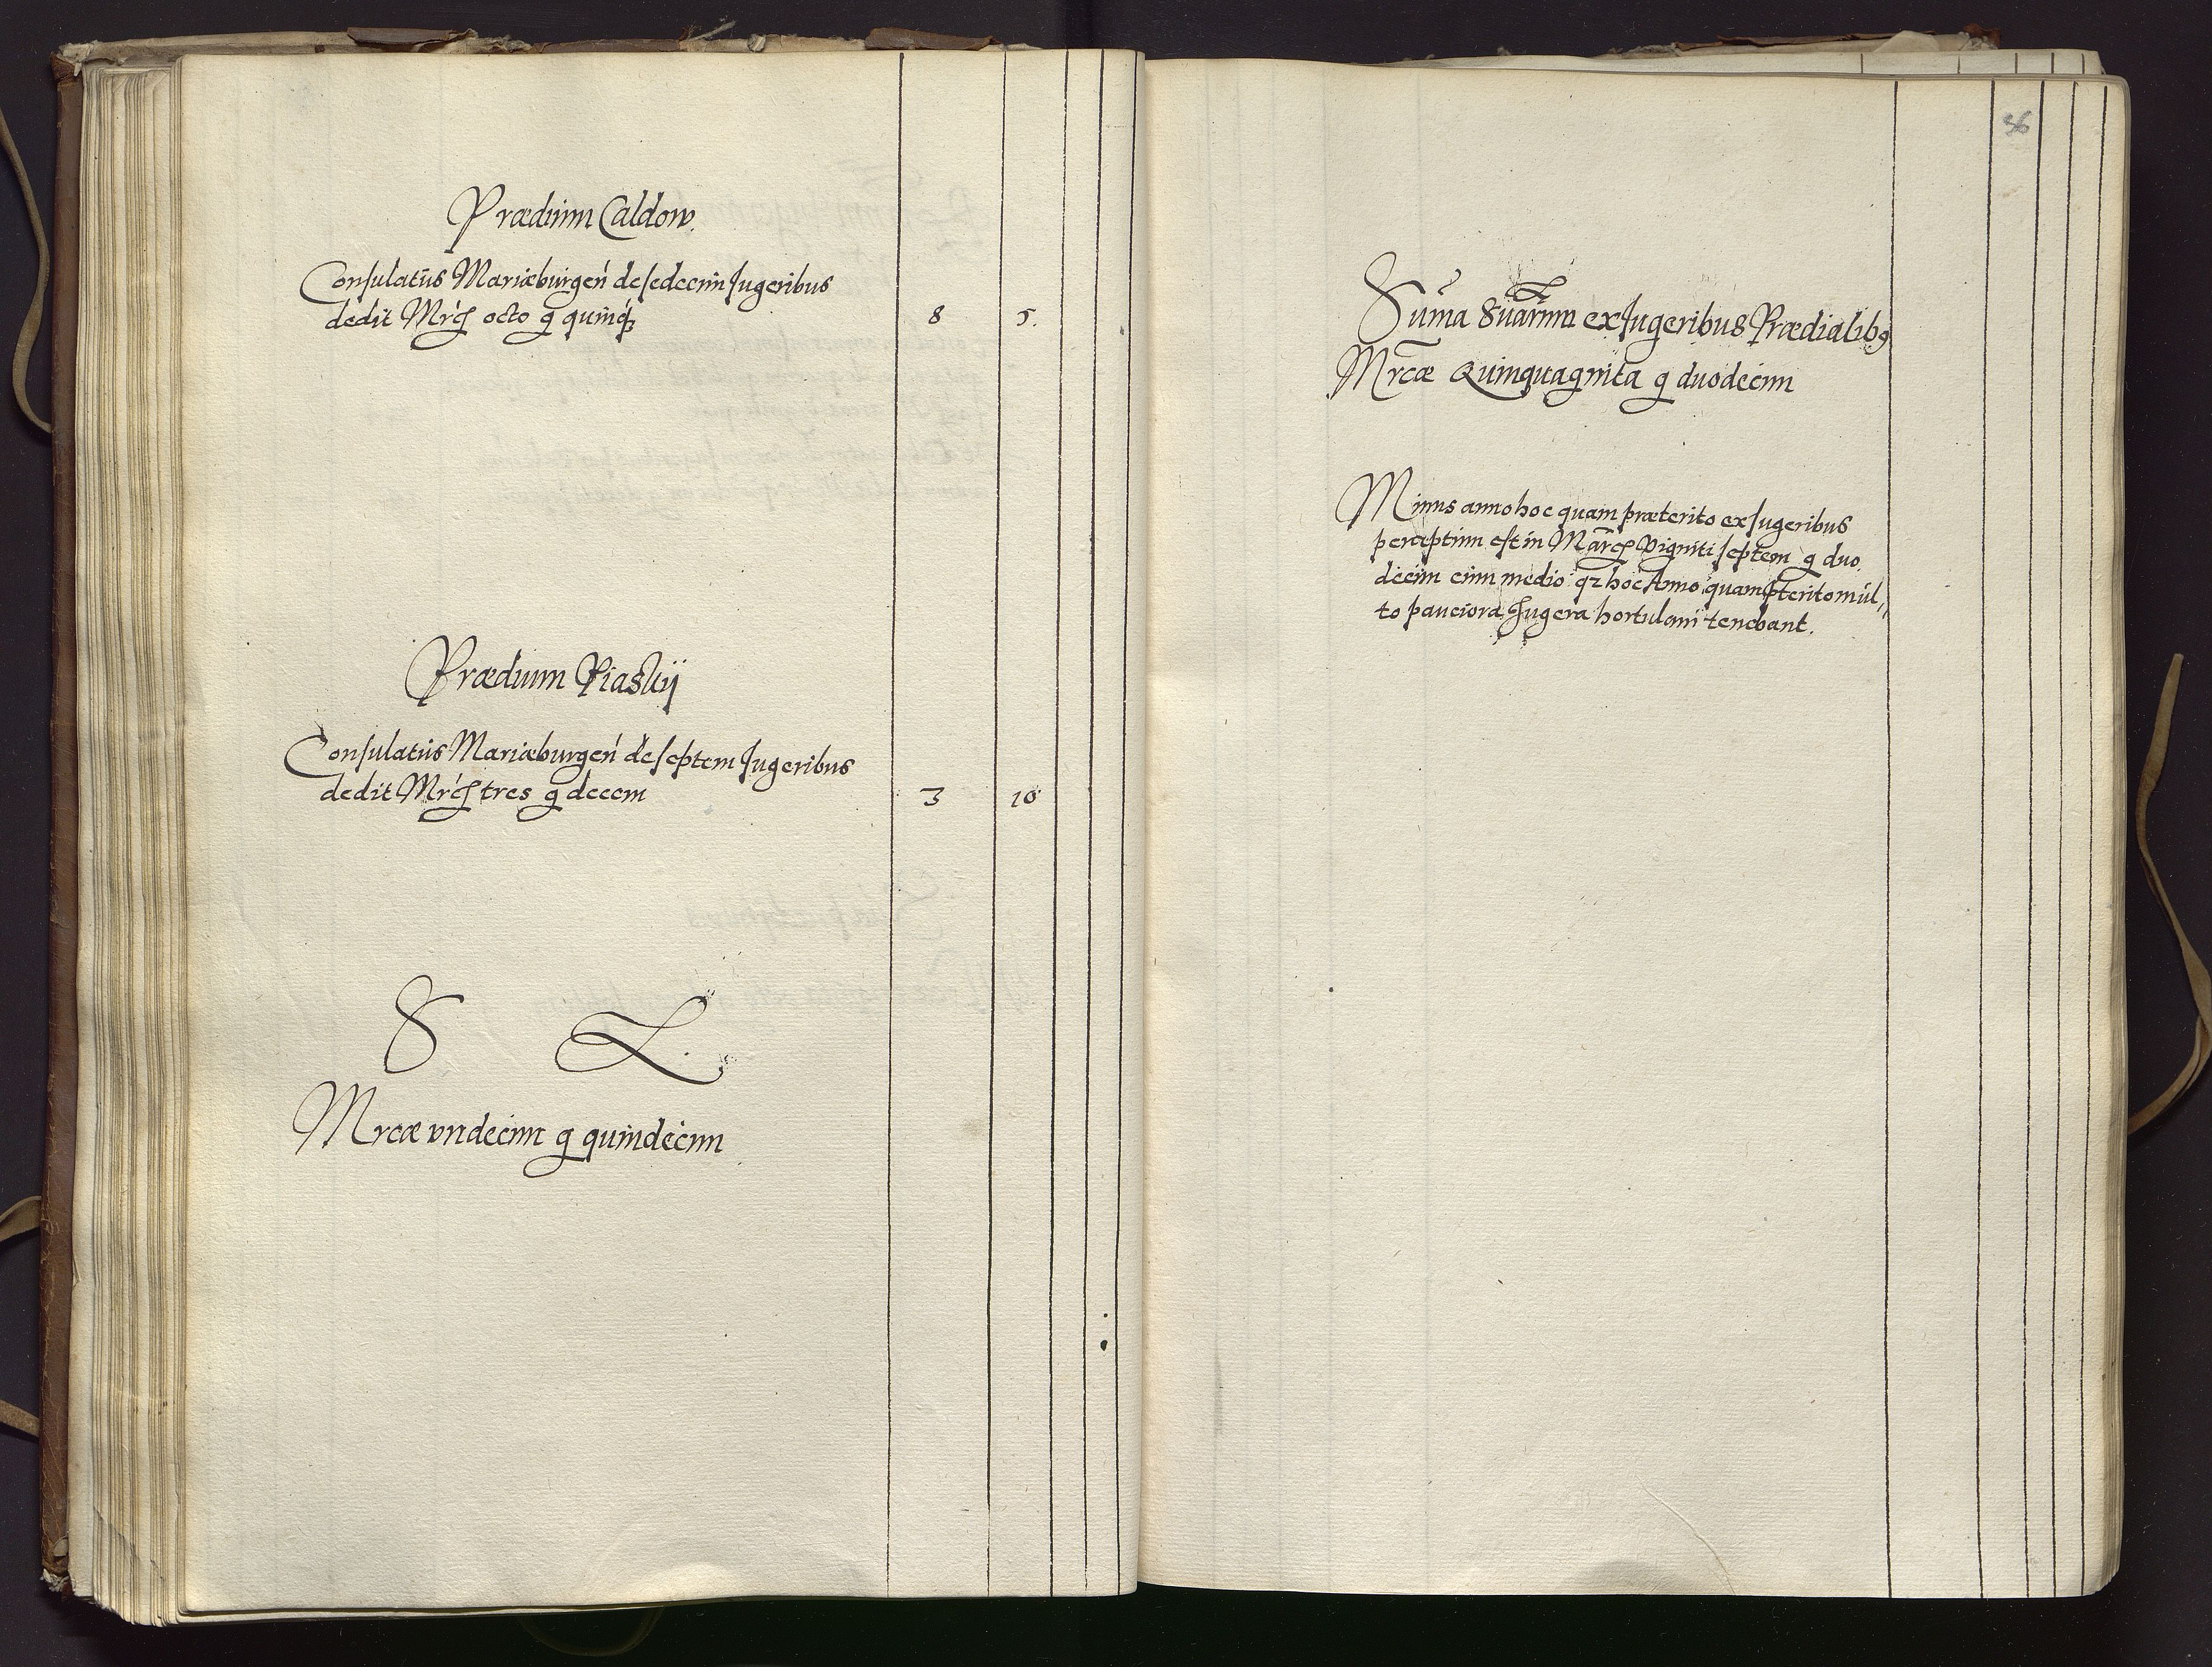 Prædium Caldow.
Consulatus Mariæburgen̄ de sedecim Jugeribus
dedit Mrcꝭ octo g quinqꝫ
8 5.
Prædium Piaskij
Consulatus Mariæburgen̄ de septem Jugeribus
dedit Mrcꝭ tres g decem
3 10
S L.
Mrcæ vndecim g quindecim
36
Sum̄a Suārum ex Jugeribus Prædialibꝰ
L
Mrcæ Quinquaginta g duodecim
Minus anno hoc quam præterito ex Jugeribus
perceptum est in Marcꝭ Viginti septem g duo
decim cum medio qz hoc Anno quam pterito mul,,
to pauciora Jugera hortulani tenebant.